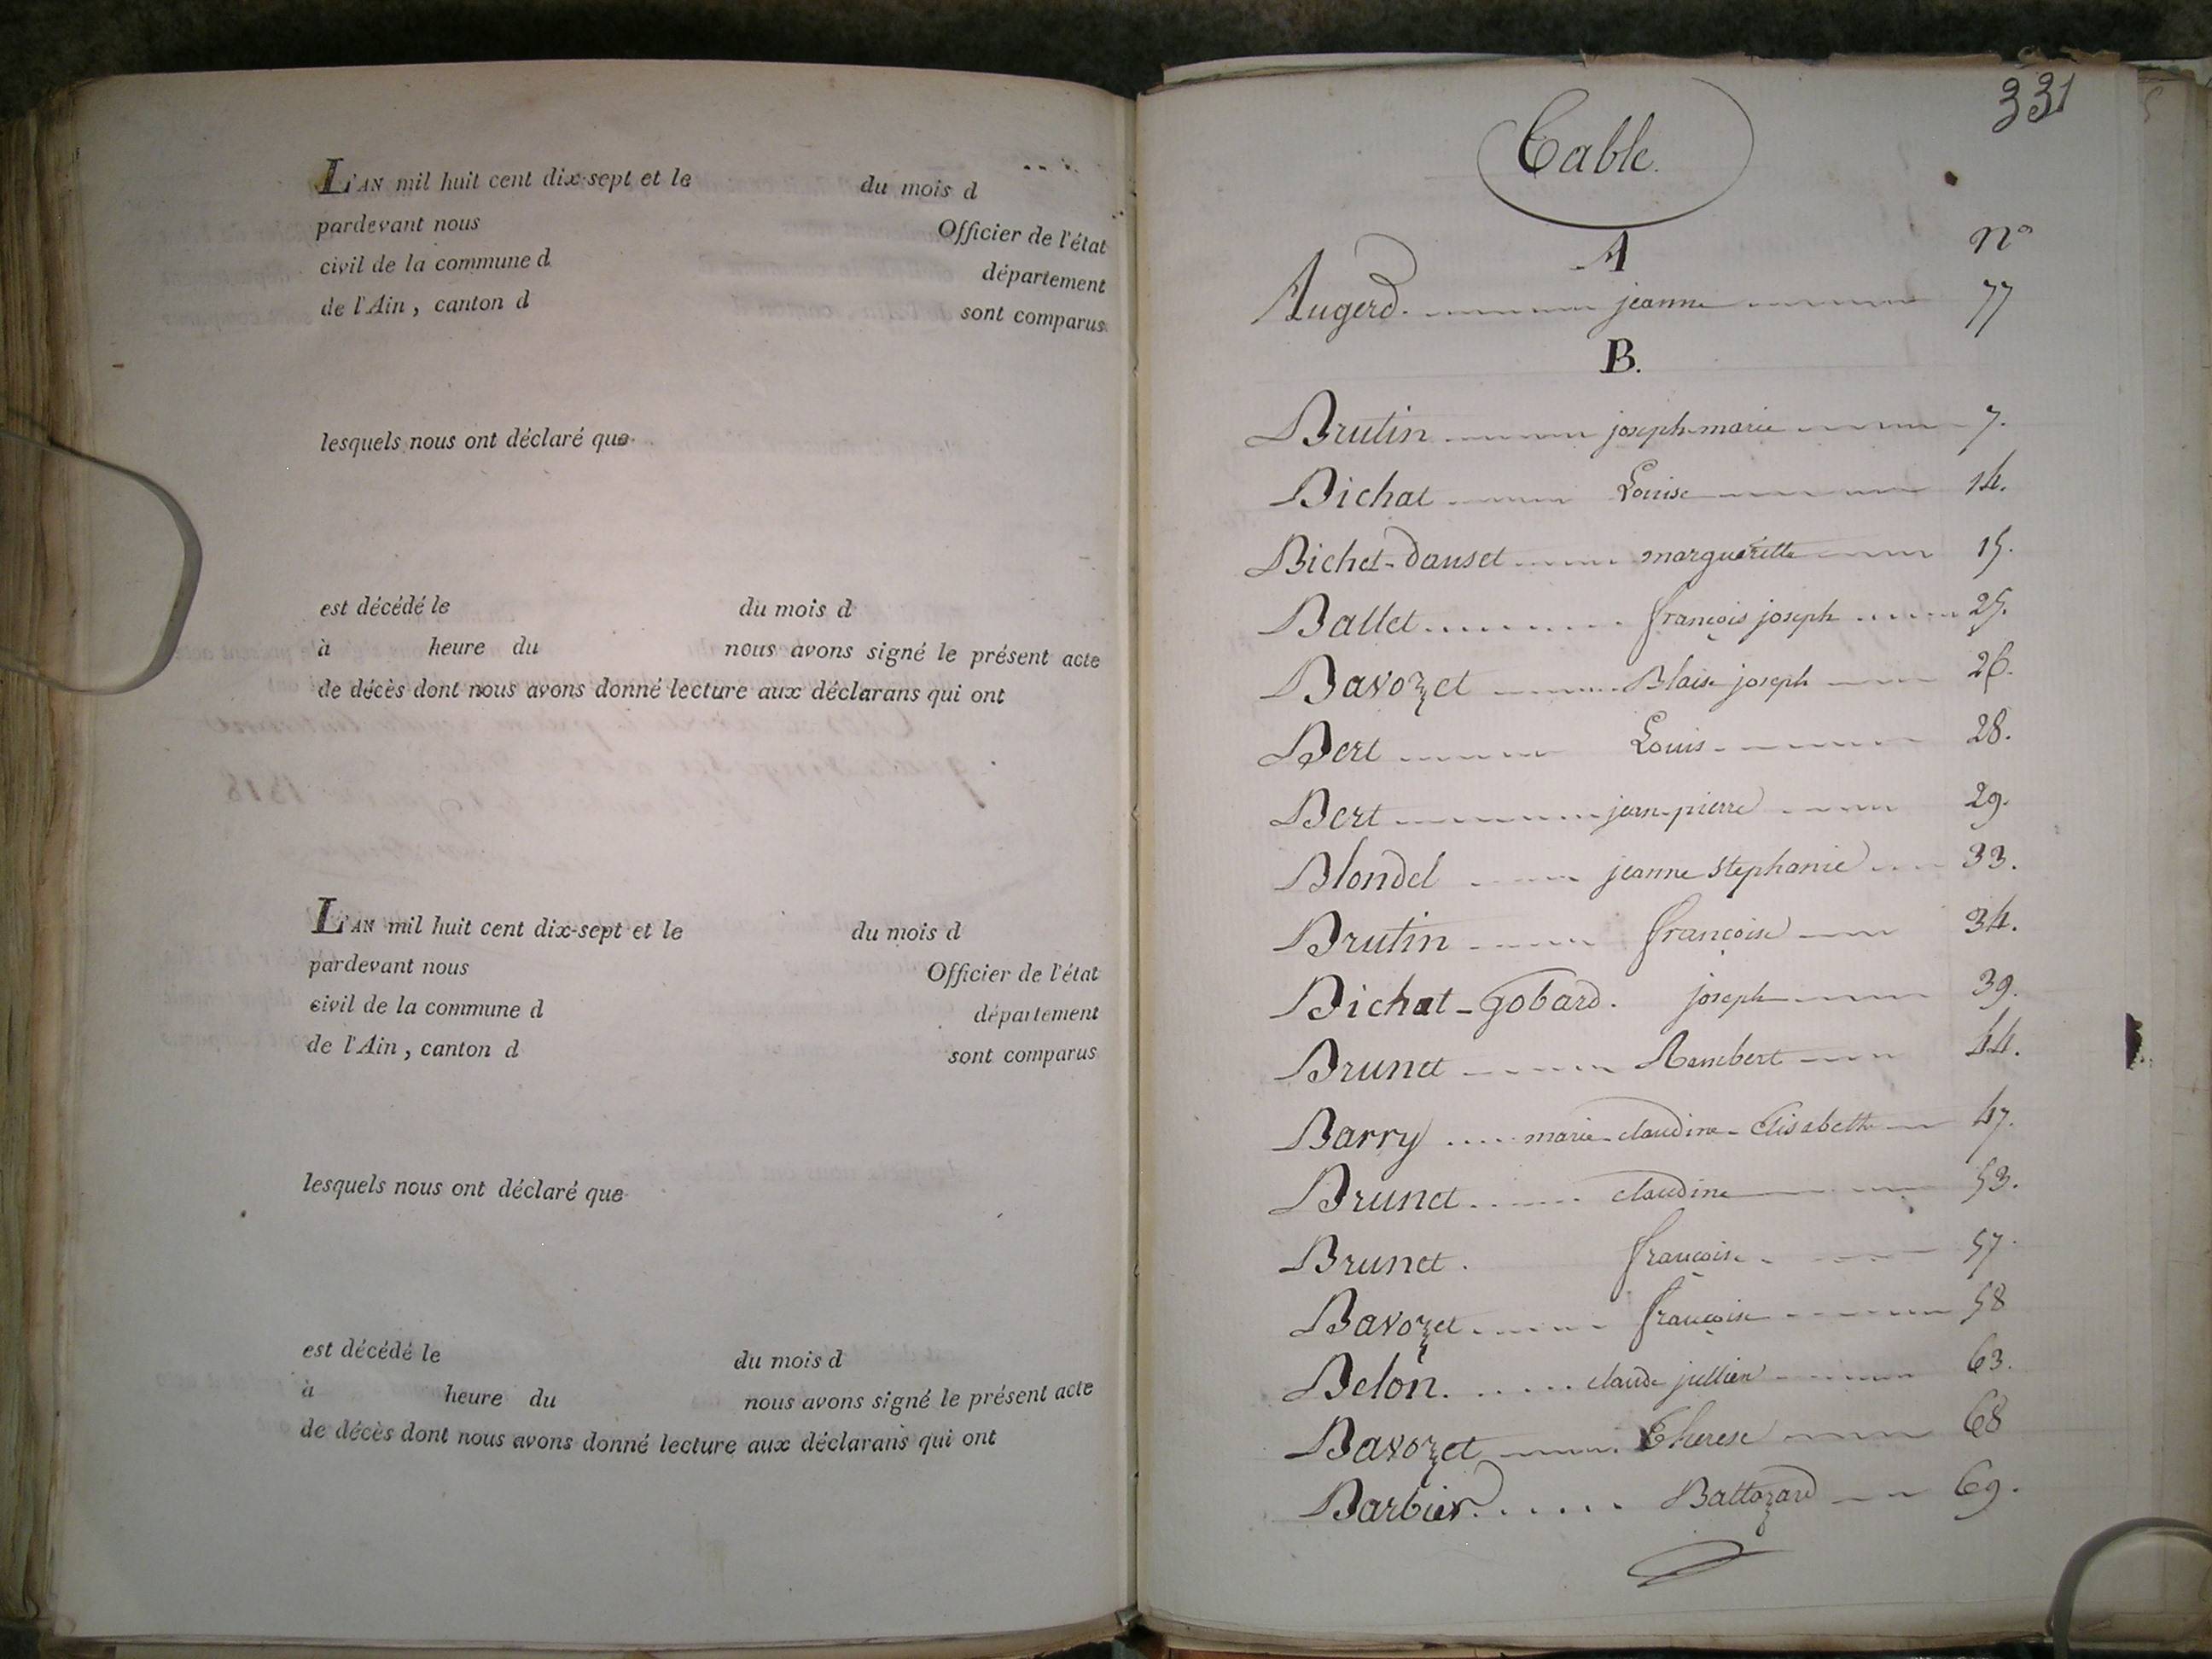 L'AN mil huit cent dix-sept et le du mois d
pardevant nous Officier de l'état
civil de la commune d département
de l'Ain, canton d sont comparus
lesquels nous ont déclaré que
est décédé le du mois d
à heure du nous avons signé le présent acte
de décès dont nous avons donné lecture aux déclarans qui ont
L'AN mil huit cent dix-sept et le du mois d
pardevant nous Officier de l'état
civil de la commune d département
de l'Ain, canton d sont comparus
lesquels nous ont déclaré que
est décédé le du mois d
à heure du nous avons signé le présent acte
de décès dont nous avons donné lecture aux déclarans qui ont
331
Table.
A n°
Augerd. jeanne 77
B.
Brutin joseph-marie 7.
Bichat Louise 14.
Bichet-Danset margueritte 15.
Ballet françois joseph 25.
Bavozet Blaise joseph 26.
Bert Louis 28.
Bert jean-pierre 29.
Blondel jeanne stephanie 33.
Brutin françoise 34.
Bichat-Gobard. joseph 39.
Brunet Rambert 44.
Barry marie-claudine-Elisabeth 47.
Brunet claudine 53.
Brunet. françoise 57.
Bavozet françoise 58
Belon. claude jullien 63.
Bavozet Therese 68
Barbier Baltazard 69.